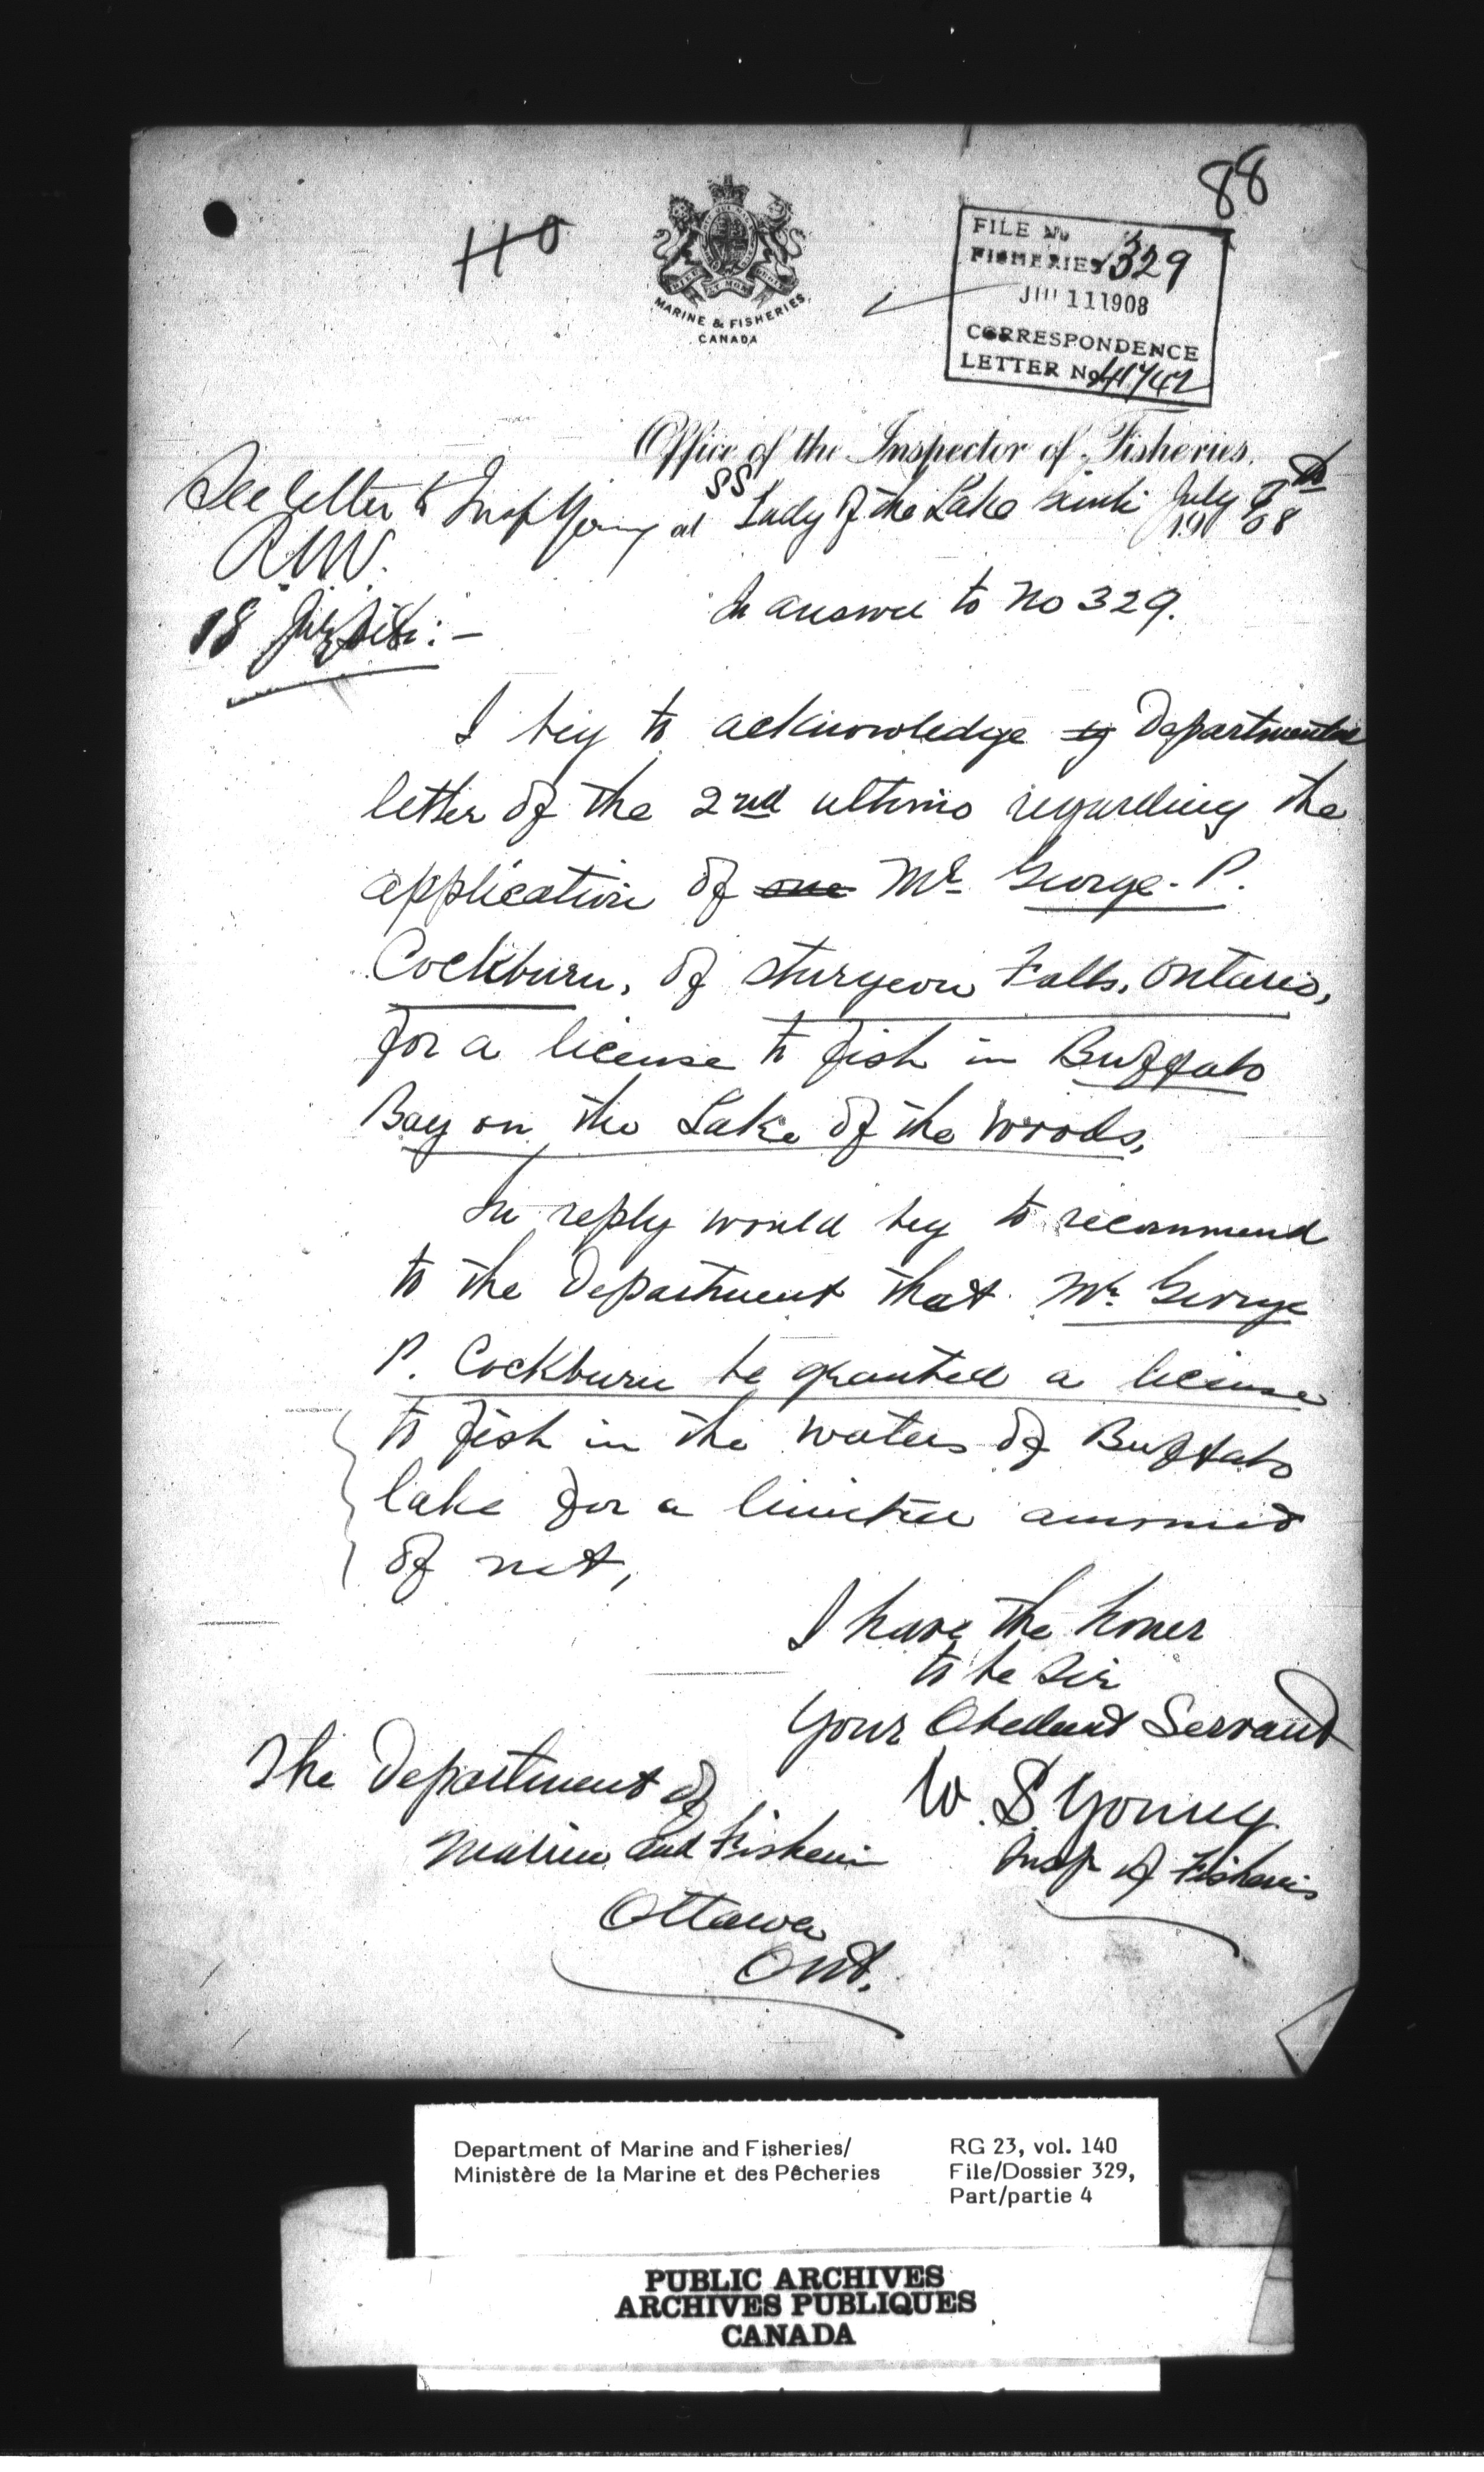 88
110
MARINE & FISHERIES
CANADA
FILE No
FISHERIES 329
JUL 11 1908
CORRESPONDENCE
LETTER No
Office of the Inspector of Fisheries.
See letter to Insp Young at SS Lady of the Lake Gimli July 7th
1908
R.M.V.
In answer to No 329.
18
Sir:-
I beg to acknowledge Departmental
letter of the 2nd ultimo regarding the
application of one Mr. George. P.
Cockburn, of Sturgeon Falls, Ontario,
for a license to fish in Buffalo
Bay on the Lake of the Woods,
In reply would beg to recommend
to the Department that Mr. George
P. Cockburn be granted a license
to fish in the waters of Buffalo
lake for a limited amount
of net,
I have the honer
to be Sir
Your Obedient Servant
W. S. Young
Insp of Fisheries
The Department of
Marine and Fisheries
Ottawa
Ont.
Department of Marine and Fisheries/
Ministère de la Marine et des Pêcheries
RG 23, vol. 140
File/Dossier 329,
Part/partie 4
PUBLIC ARCHIVES
ARCHIVES PUBLIQUES
CANADA